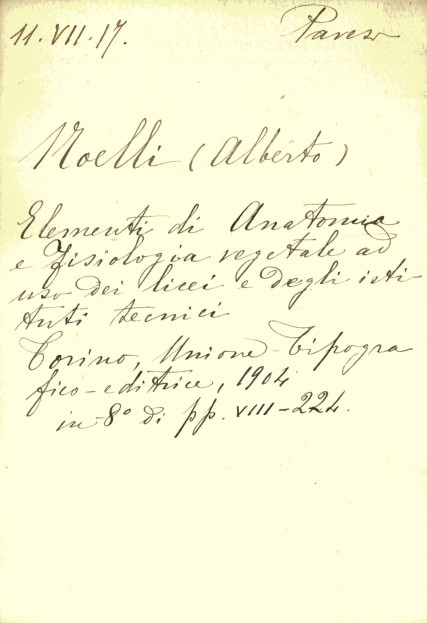 11.VII.17. Pavesi
Noelli (Alberto)
Elementi di Anatomia
e Fisiologia vegetale ad
uso dei licei e degli isti-
tuti tecnici
Torino, Unione Tipogra
fico-editrice, 1904
in-8° di pp. VIII-224.